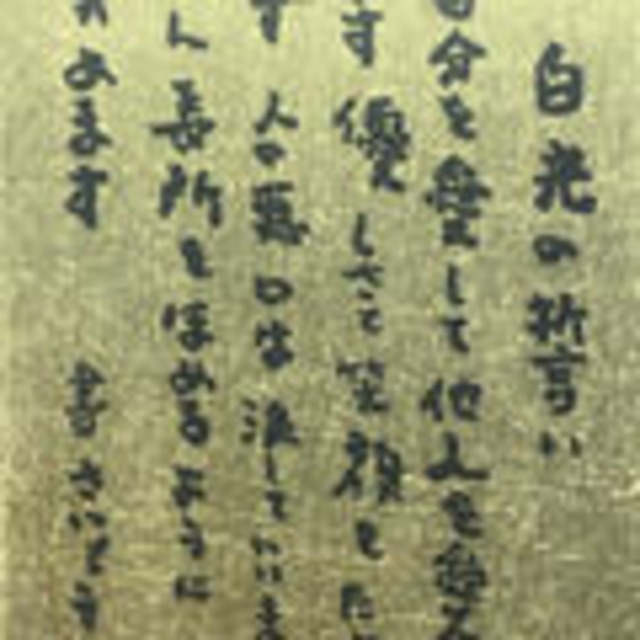 白光の誓い
自分を愛して他人を愛
す 優しさと笑顔を
す 人の悪口は決していいま
ん 長所をほめるように
めます